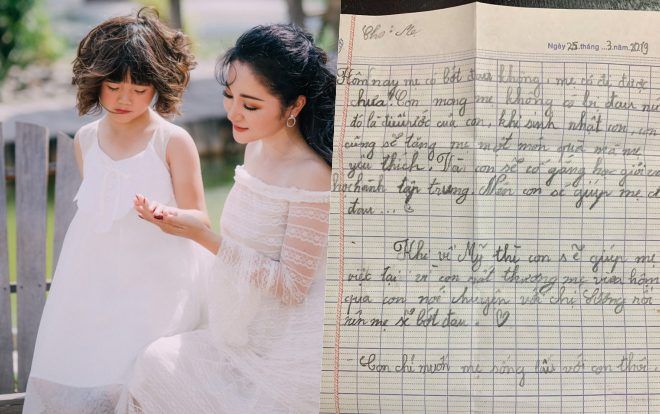 Cho: Mẹ
Ngày 25 tháng 3 năm 2019
Hôm nay mẹ có bớt đau không, mẹ có đi được
chưa? Con mong mẹ không có bị đau nữa
đó là điều ước của con, khi sinh nhật con, con
cũng sẽ tặng mẹ một món quà mà mẹ
yêu thích. Và con sẽ cố gắng học giỏi và
học hành tập trung. Nên con sẽ giúp mẹ
đau...
Khi về Mỹ thì con sẽ giúp mẹ
việc lại vì con rất thương mẹ vừa hôm
qua con nói chuyện với chị Sương rồi
nên mẹ sẽ bớt đau.
- Con chỉ muốn mẹ sống lâu với con thôi